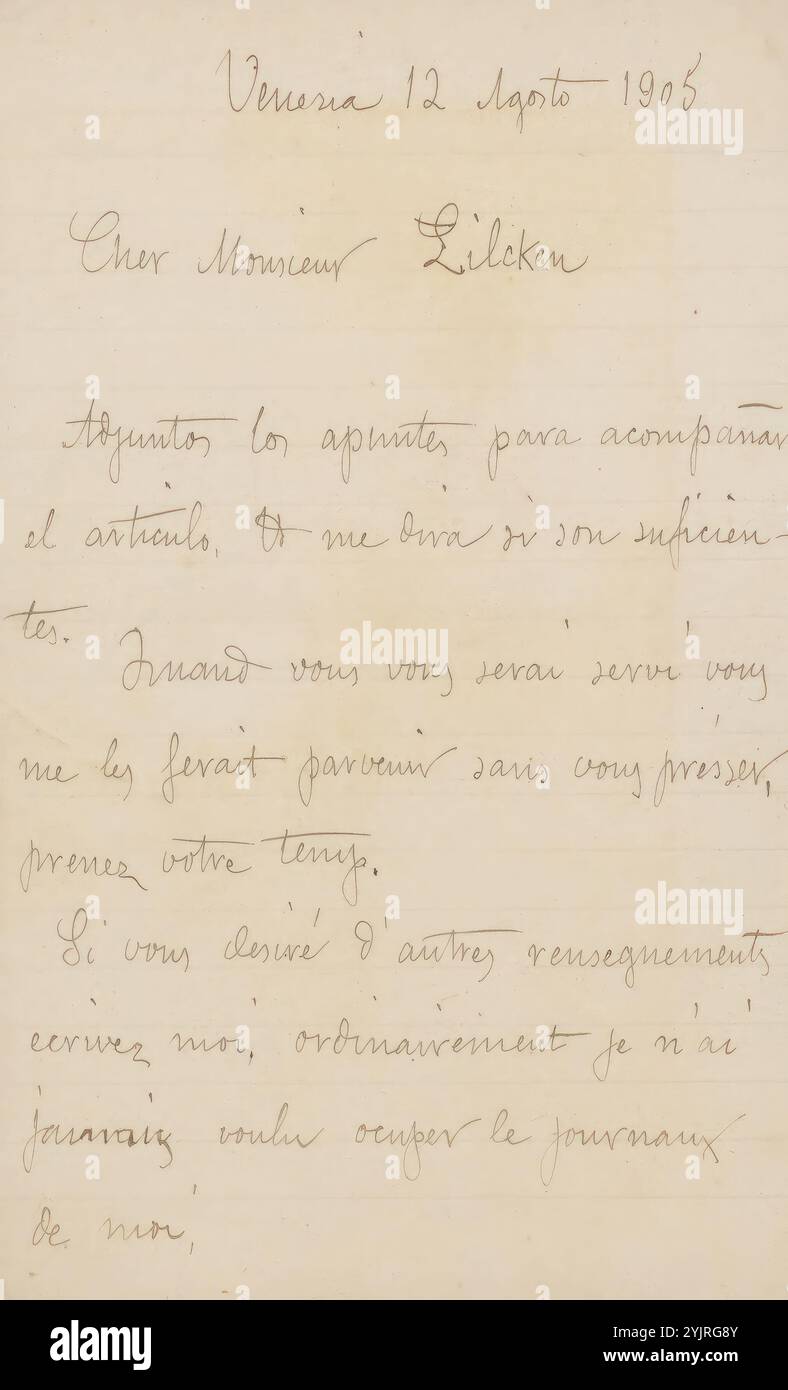 Venezia 12 Agosto 1905
Cher Monsieur Zilcken
Adjuntos los apuntes para acompañar
el articulo, me dira si son suficien-
tes.
Quand vous vous serai servi vous
me les ferait parvenir sans vous présser,
prenez votre temps.
Si vous desiré d'autres rensegnements
ecrivez moi, ordinairement je n'ai
jamais voulu ocuper le journaux
de moi,
alamy
Image ID: 2YJRG8Y
www.alamy.com